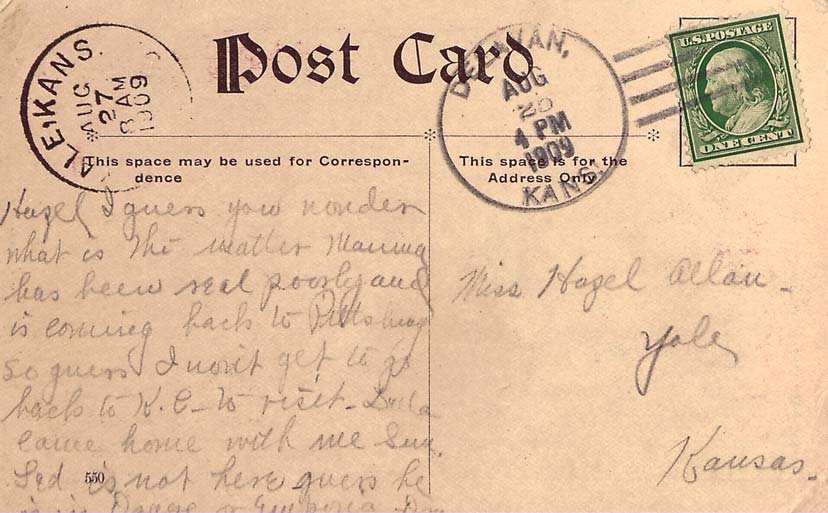 Post Card
ALE, KANS.
AUG
27
8 AM
1909
DELAVAN,
AUG
26
4 PM
1909
KANS.
U.S. POSTAGE
ONE CENT
This space may be used for Correspon-
dence
This space is for the
Address Only.
Hazel I guess you wonder
what is the matter Mamma
has been real poorly and
is coming back to Pittsburg
so guess I won't get to go
back to K.C. to visit.
came home with me Sun.
is not here guess he
is in Osage or Emporia
550
Miss Hazel Allan
Yale
Kansas.